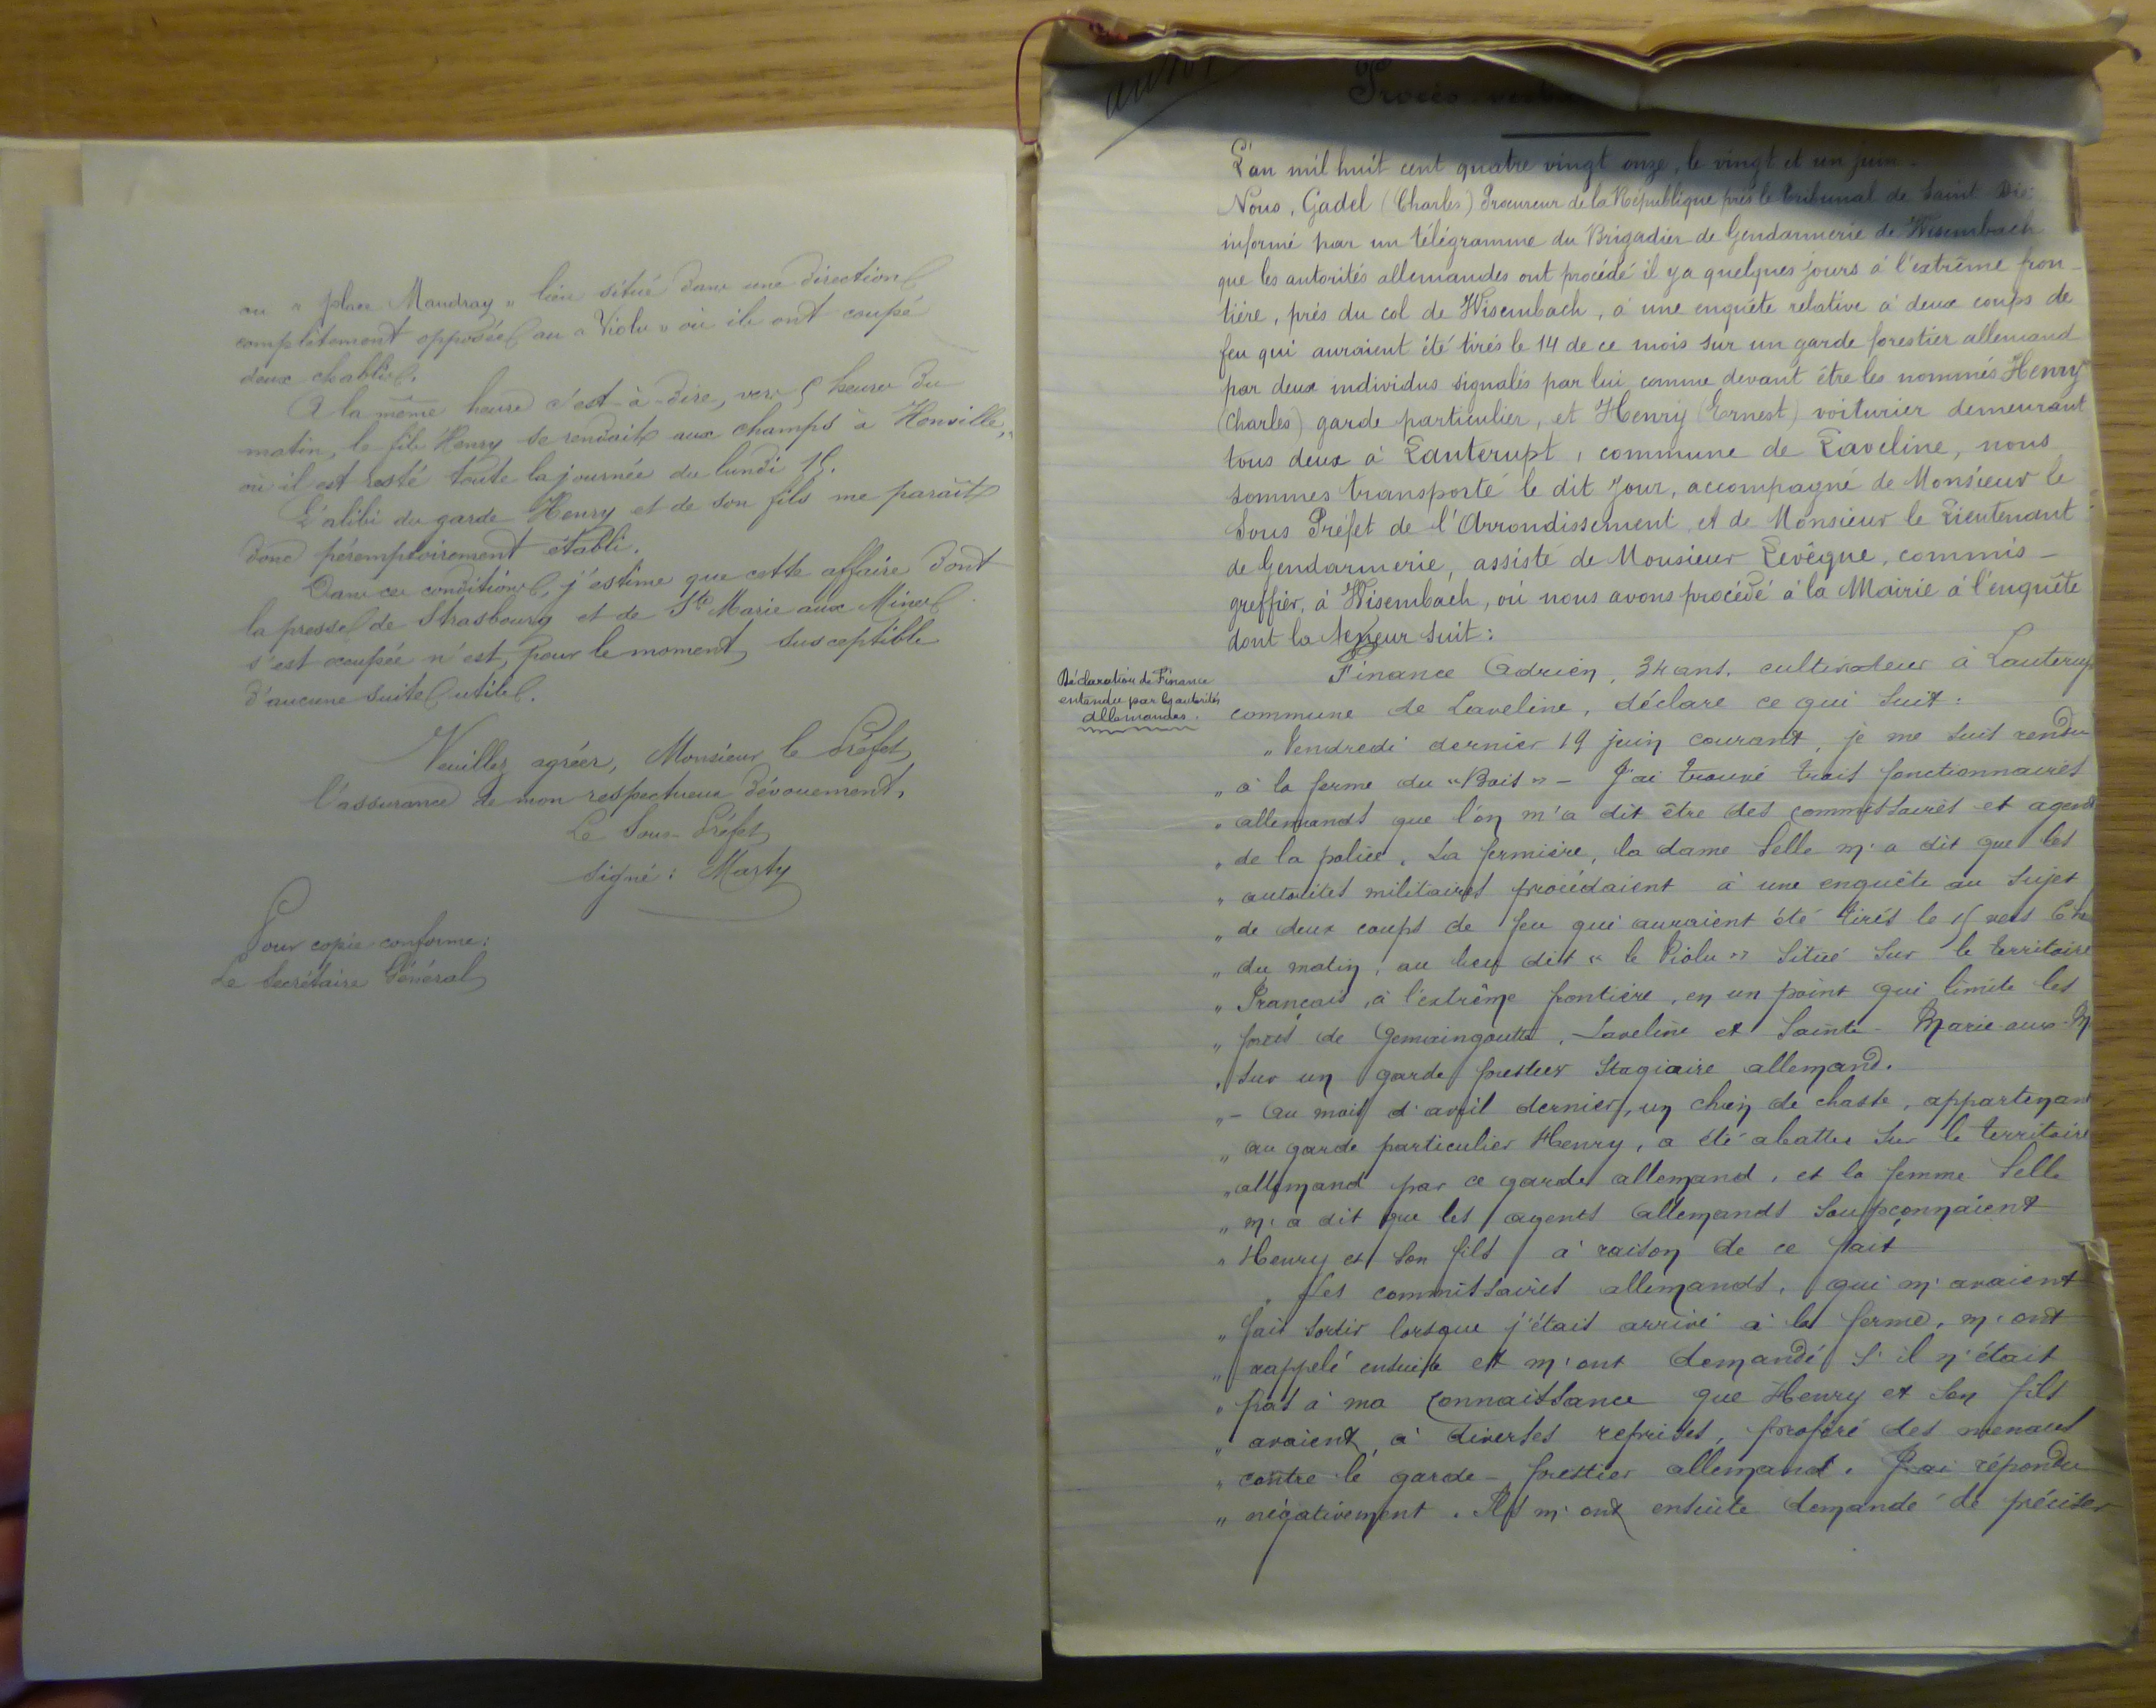 au « plan Mandray » lieu situé dans une direction
complètement opposée au « Violu » où ils ont coupé
deux chablis.
A la même heure c'est-à-dire, vers 5 heures du
matin, le fils Henry se rendait aux champs à Honville,
où il est resté toute la journée du lundi 15.
L'alibi du garde Henry et de son fils me paraît
donc péremptoirement établi.
Dans ces conditions, j'estime que cette affaire dont
la presse de Strasbourg et de Ste Marie aux Mines
s'est occupée n'est, pour le moment, susceptible
d'aucune suite utile.
Veuillez agréer, Monsieur le Préfet,
l'assurance de mon respectueux dévouement.
Le Sous-Préfet
signé : Marty
Pour copie conforme :
Le Secrétaire Général
Procès
L'an mil huit cent quatre vingt onze, le vingt et un juin.
Nous, Gadel (Charles) Procureur de la République près le tribunal de Saint Dié
informé par un télégramme du Brigadier de Gendarmerie de Wisembach
que les autorités allemandes ont procédé il y a quelques jours à l'extrême fron-
tière, près du col de Wisembach, à une enquête relative à deux coups de
feu qui auraient été tirés le 14 de ce mois sur un garde forestier allemand
par deux individus signalés par lui comme devant être les nommés Henry
(Charles) garde particulier, et Henry (Ernest) voiturier demeurant
tous deux à Lauterupt, commune de Laveline, nous
sommes transporté le dit jour, accompagné de Monsieur le
Sous Préfet de l'Arrondissement et de Monsieur le Lieutenant
de Gendarmerie, assisté de Monsieur Levêque, commis-
greffier, à Wisembach, où nous avons procédé à la Mairie à l'enquête
dont la teneur suit :
Déclaration de Finance
entendu par les autorités
allemandes.
Finance Adrien, 34 ans, cultivateur à Lauterup
commune de Laveline, déclare ce qui suit :
„ Vendredi dernier 19 juin courant, je me suis rendu
„ à la ferme du « Bois » - J'ai trouvé trois fonctionnaires
„ allemands que l'on m'a dit être des commissaires et agents
„ de la police. La fermière, la dame Selle m'a dit que les
„ autorités militaires procédaient à une enquête au sujet
„ de deux coups de feu qui auraient été tirés le 15 vers 6 h
„ du matin, au lieu dit « le Violu » situé sur le territoire
„ Français, à l'extrême frontière, en un point qui limite les
„ forêts de Gemaingoutte, Laveline et Sainte-Marie-aux-M
„ sur un garde forestier stagiaire allemand.
„ - Au mois d'avril dernier, un chien de chasse, appartenant
„ au garde particulier Henry, a été abattu sur le territoire
„ allemand par ce garde allemand, et la femme Selle
„ m'a dit que les agents allemands soupçonnaient
„ Henry et son fils à raison de ce fait
„ Les commissaires allemands, qui m'avaient
„ fait sortir lorsque j'étais arrivé à la ferme, m'ont
„ rappelé ensuite et m'ont demandé s'il n'était
„ pas à ma connaissance que Henry et son fils
„ avaient, à diverses reprises, proféré des menaces
„ contre le garde-forestier allemand. J'ai répondu
„ négativement. Ils m'ont ensuite demandé de préciser